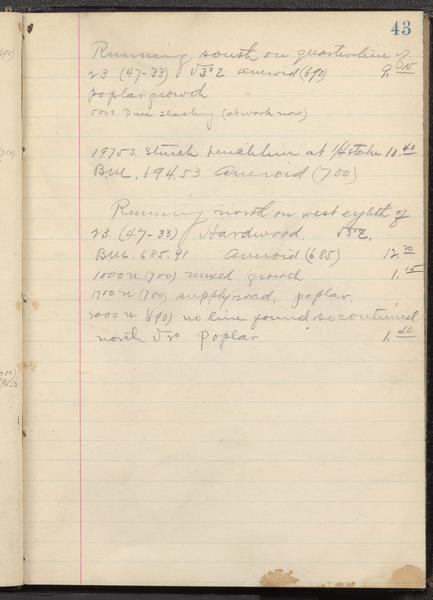 43
Running south on quarterline of
23 (47-33) V3°E aneroid (690) 9.
poplar growth
500s. Pine slashing (at work now)
1975s. Struck benchline at 1/4 stake 10.40
B.M. 694.53 Aneroid (700)
Running north on west eighth of
23 (47-33) Hardwood. V3°E.
B.M. 685.91 Aneroid (685) 12.20
1000n (700) mixed growth 1.15
1700n (700) supply road, poplar.
2000n (690) no line found so continued
north V2° Poplar. 1.40